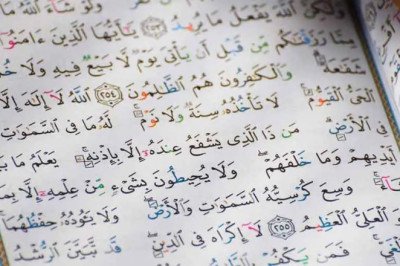 وَلَٰكِنَّ ٱللَّهَ يَفْعَلُ مَا يُرِيدُ يَٰٓأَيُّهَا ٱلَّذِينَ ءَامَنُوٓا۟
مِمَّا رَزَقْنَٰكُم مِّن قَبْلِ أَن يَأْتِىَ يَوْمٌ لَّا بَيْعٌ فِيهِ وَلَا
شَفَٰعَةٌ ۗ وَٱلْكَٰفِرُونَ هُمُ ٱلظَّٰلِمُونَ ٢٥٤ ٱللَّهُ لَآ إِلَٰهَ إِلَّا
ٱلْحَىُّ ٱلْقَيُّومُ ۚ لَا تَأْخُذُهُۥ سِنَةٌ وَلَا نَوْمٌ ۚ لَّهُۥ مَا فِى ٱلسَّمَٰوَٰتِ
فِى ٱلْأَرْضِ ۗ مَن ذَا ٱلَّذِى يَشْفَعُ عِندَهُۥٓ إِلَّا بِإِذْنِهِۦ ۚ يَعْلَمُ مَا
أَيْدِيهِمْ وَمَا خَلْفَهُمْ ۖ وَلَا يُحِيطُونَ بِشَىْءٍ مِّنْ عِلْمِهِۦٓ إِلَّا
وَسِعَ كُرْسِيُّهُ ٱلسَّمَٰوَٰتِ وَٱلْأَرْضَ ۖ وَلَا يَـُٔودُهُۥ حِفْظُهُمَا
ٱلْعَلِىُّ ٱلْعَظِيمُ ٢٥٥ لَآ إِكْرَاهَ فِى ٱلدِّينِ ۖ قَد تَّبَيَّنَ ٱلرُّشْدُ
فَمَن يَكْفُرْ